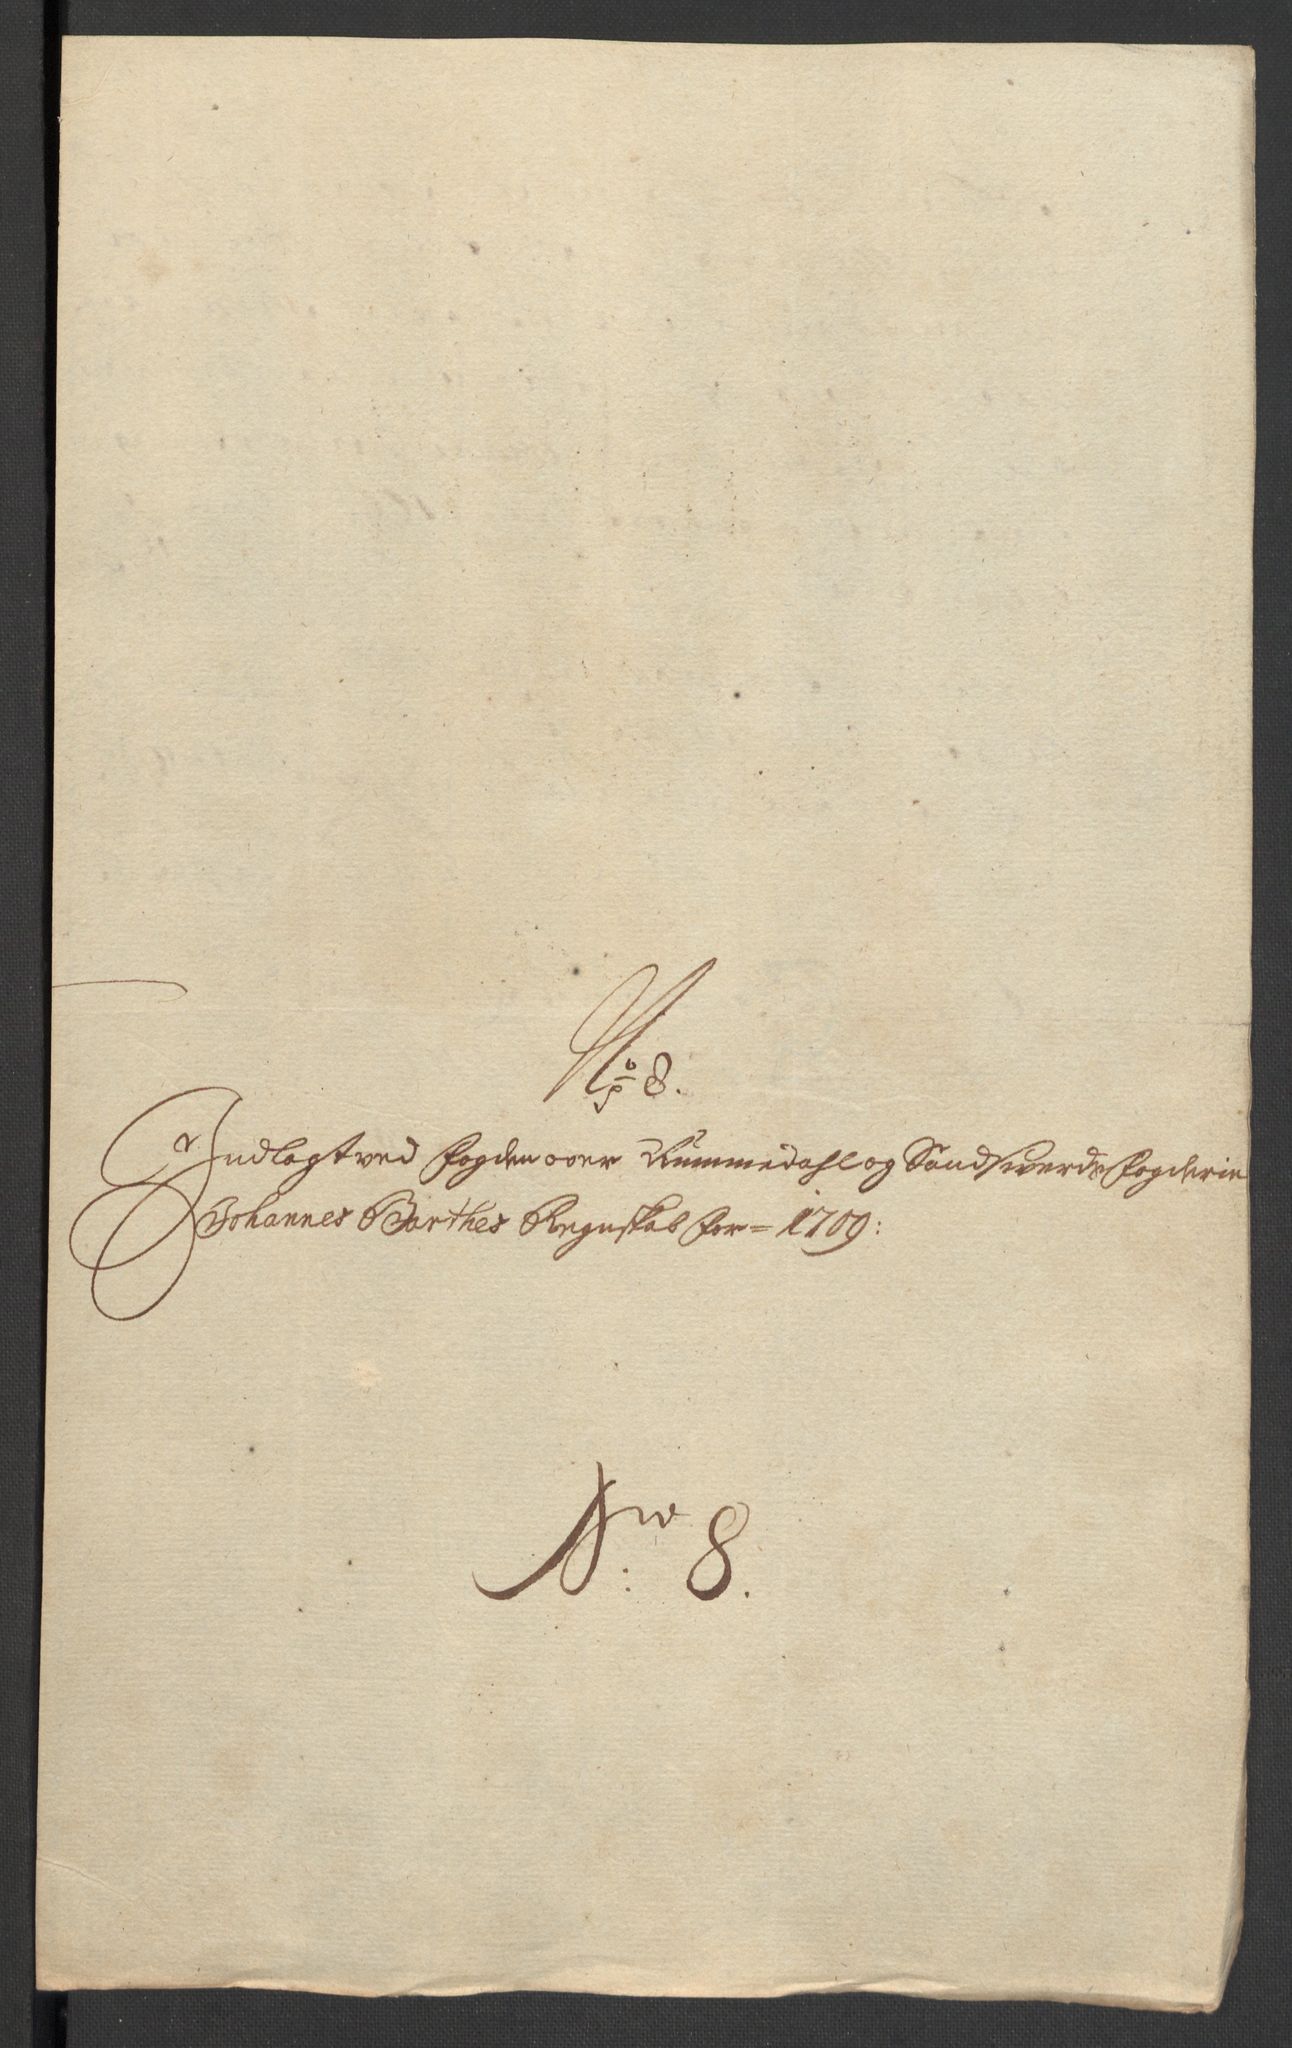 No 8.
Indlagt ved fogden over Nummedahl og Sandsverds fogderie
Johannes Barthes Regnskab for = 1709:
No: 8.